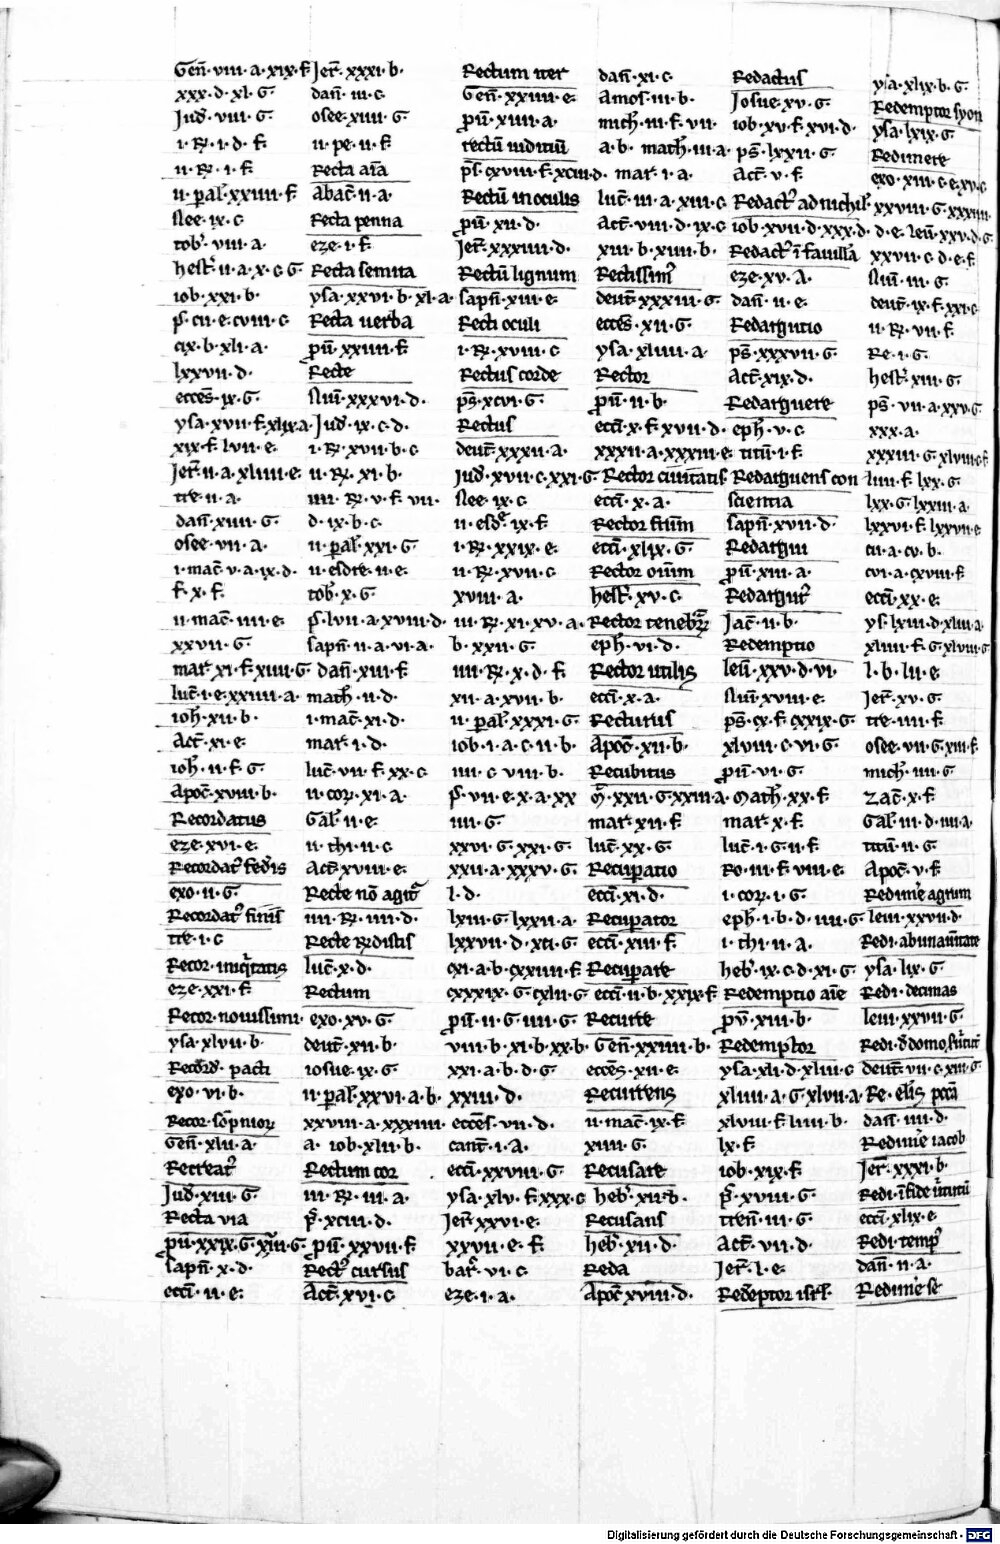 Gen̄·viii·a·xix·f
xxx·d·xl·G·
Jud̄·viii·G
i·R·i·d·f·
ii·R·i·f·
ii·pal̄·xxiiii·f
Nee·ix·c·
tob̄·viii·a·
hest̄·ii·a·x·c·G
iob·xxi·b·
p̄·cii·e·cviii·c
cix·b·xli·a·
lxxvii·d·
eccēs·ix·G·
ysa·xvii·f·xlix·a
xix·f·lvii·e·
Jer̄·ii·a·xliiii·e
tre·ii·a·
dan̄·xiiii·G
osee·vii·a·
i·mac̄·v·a·ix·d·
f·x·f·
ii·mac̄·iiii·e·
xxvii·G·
mar̄·xi·f·xiii·G
luc̄·i·e·xxiiii·a·
ioh̄·xii·b·
Act̄·xi·e·
ioh̄·ii·f·G·
Apoc̄·xviii·b·
Recordatus
eze·xvi·e·
Recordat᷒ fed̄is
exo·ii·G·
Recordat᷒ finis
tre·i·c
Recor·iniq̄tatis
eze·xxi·f·
Recor·novissimi·
ysa·xlvii·b·
Record̄· pacti
exo·vi·b·
Recor·sōpnior̄
Gen̄·xlii·a·
Recreat᷒
Jud̄·xiii·G·
Recta via
p̄u·xxix·G·xiiii·G
sapn̄·x·d·
eccī·ii·e·
Jer̄·xxxi·b·
dan̄·iii·c·
osee·xiiii·G
ii·pe·ii·f
Recta aīa
abac̄·ii·a·
Recta penna
eze·i·f·
Recta semita
ysa·xxvi·b·xl·a·
Recta verba
p̄u·xxiiii·f·
Recte
Nuī·xxxvi·d·
Jud̄·ix·c·d·
i·R·xvii·b·c
ii·R·xi·b·
iiii·R·v·f·vii·
d·ix·b·c·
ii·pal̄·xxi·G
ii·esdre·ii·e·
tob̄·x·G·
p̄·lvii·a·xviii·d·
sapn̄·ii·a·vi·a·
dan̄·xiii·f
math̄·ii·d·
i·mac̄·xi·d·
mar̄·i·d·
luc̄·vii·f·xx·c·
ii·cor̄·xi·a·
Gal̄·ii·e·
ii·thi·ii·c·
Act̄·xviii·e·
Recte nō agit᷒
iiii·R·iiii·d·
Recte R̄distis
luc̄·x·d·
Rectum
exo·xv·G·
deut̄·xii·b·
iosue·ix·G·
ii·pal̄·xxvi·a·b·
xxviii·a·xxxiiii·
a· iob·xlii·b·
Rectum cor
iii·R·iii·a·
p̄s·xciii·d·
p̄u·xxvii·f
Rect᷒ cursus
Act̄·xvi·c
Rectum iter
Gen̄·xxiiii·e·
p̄u·xiiii·a·
rectū iuditiū
p̄s·cxviii·f·xciii·d·
Rectū in oculis
p̄u·xii·d·
Jer̄·xxxiiii·d·
Rectū lignum
sapn̄·xiii·e·
Recti oculi
i·R·xviii·c
Rectus corde
p̄s·xcvi·G·
Rectus
deut̄·xxxii·a·
Jud̄·xvii·c·xxi·G·
Nee·ix·c·
ii·esd᷒e·ix·f
i·R·xxix·e·
ii·R·xvii·c
xviii·a·
iii·R·xi·xv·a·
b·xxii·G·
iiii·R·x·d·f·
xii·a·xvii·b·
ii·pal̄·xxxi·G·
iob·i·a·c·ii·b·
iiii·c·viii·b·
p̄·vii·e·x·a·xx
iiii·G·
xxvi·G·xxi·G·
xxii·a·xxxv·G·
l·d·
lxiii·G·lxxii·a·
lxxvii·d·xci·G
cxi·a·b·cxxiiii·f
cxxxix·G·cxlii·G
p̄u·ii·G·iiii·G·
viii·b·xi·b·xx·b·
xxi·a·b·d·G·
xxiii·d·
eccēs·vii·d·
cant̄·i·a·
eccī·xxviii·G·
ysa·xlv·f·xxx·c
Jer̄·xxvi·e·
xxvii·e·f·
bar̄·vi·c·
eze·i·a·
dan̄·xi·c·
Amos·iii·b·
mich̄·iii·f·vii·
a·b· math̄·iii·a·
mar̄·i·a·
luc̄·iii·a·xiii·c·
Act̄·viii·d·ix·c
xiii·b·xiiii·b·
Rectissim᷒
deut̄·xxxiii·G·
eccēs·xii·G·
ysa·xliiii·a·
Rector
p̄u·ii·b·
eccī·x·f·xvii·d·
xxxii·a·xxxiii·e·
Rector civitatis
eccī·x·a·
Rector frūm
eccī·xlix·G·
Rector oīum
hest̄·xv·c·
Rector tenebr̄
eph̄·vi·d·
Rector utilis
eccī·x·a·
Recturus
Apoc̄·xii·b·
Recubitus
m̄·xxii·G·xxiii·a·
mar̄·xii·f·
luc̄·xx·G·
Recup̄atio
eccī·xi·d·
Recup̄ator
eccī·xiii·f·
Recup̄are
eccī·ii·b·xxix·f
Recurre
Gen̄·xxiiii·b·
eccēs·xii·e·
Recurrens
ii·mac̄·ix·f·
xiiii·G·
Recusare
heb̄·xii·b·
Recusans
heb̄·xii·d·
Reda
Apoc̄·xviii·d·
Redactus
Josue·xv·G·
iob·xv·f·xvi·d·
p̄s·lxxii·G·
Act̄·v·f·
Redact᷒ ad nichil᷒
iob·xvii·d·xxx·d·
Redact᷒ ī favillā
eze·xv·a·
dan̄·ii·e·
Redargutio
p̄s·xxxvii·G·
Act̄·xix·d·
Redarguere
eph̄·v·c·
titū·i·f·
Redarguens con
scientia
sapn̄·xvii·d·
Redargui
p̄u·xiii·a·
Redarguit᷒
Jac̄·ii·b·
Redemptio
leui̅·xxv·d·vi·
Nuī·xviii·e·
p̄s·cx·f·cxxix·G·
xlviii·c·vi·G·
p̄u·vi·G·
math̄·xx·f·
mar̄·x·f·
luc̄·i·G·ii·f·
Ro·iii·f·viii·e·
i·cor̄·i·G·
eph̄·i·b·d·iiii·G·
i·thi·ii·a·
heb̄·ix·c·d·xi·G·
Redemptio aīe
p̄v·xiii·b·
Redemptor
ysa·xli·d·xliii·c
xliiii·a·G·xlvii·a·
xlviii·f·liiii·b·
lx·f·
iob·xix·f·
p̄s·xviii·G·
tren̄·iii·G·
Act̄·vii·d·
Jer̄·l·e·
Redēptor isrl̄·
ysa·xlix·b·G·
Redemptor syon
ysa·lxix·G·
Redimere
exo·xiii·c·e·xv·c·
xxviii·G·xxxiiii·
d·e·leui̅·xxv·d·G·
xxvii·c·d·e·f·
Nuī·iii·G·
deut̄·ix·f·xxi·c
ii·R·vii·f·
Re·i·G·
hest̄·xiii·G·
p̄s·vii·a·xxv·G·
xxx·a·
xxxiii·G·xlviii·f
liiii·f·lxx·G·
lxx·G·lxxiii·a·
lxxvi·f·lxxvii·e
cii·a·cv·b·
cvi·a·cxviii·f
eccī·xx·e·
ys·lxiii·d·xliii·a·
xliiii·f·G·xlviii·G
l·b·lii·e
Jer̄·xv·G·
tre·iiii·f·
osee·vii·G·xiii·f·
mich̄·iiii·G·
Zac̄·x·f·
Gal̄·iii·d·iiii·a·
titū·ii·G·
Apoc̄·v·f
Redim̄e agrum
leui·xxvii·d·
Redi·abūnantate
ysa·lix·G·
Redi·decimas
leui·xxvii·G·
Redi·d̄domo·s̄uitut᷒
deut̄·vii·c·xiii·G·
Re·elīs pcc̄a
dan̄·iiii·d·
Redim̄e iacob
Jer̄·xxxi·b·
Redi·ī fide ūtutū
eccī·xlix·e·
Redi·temp᷒
dan̄·ii·a·
Redim̄e se
Digitalisierung gefördert durch die Deutsche Forschungsgemeinschaft · DFG